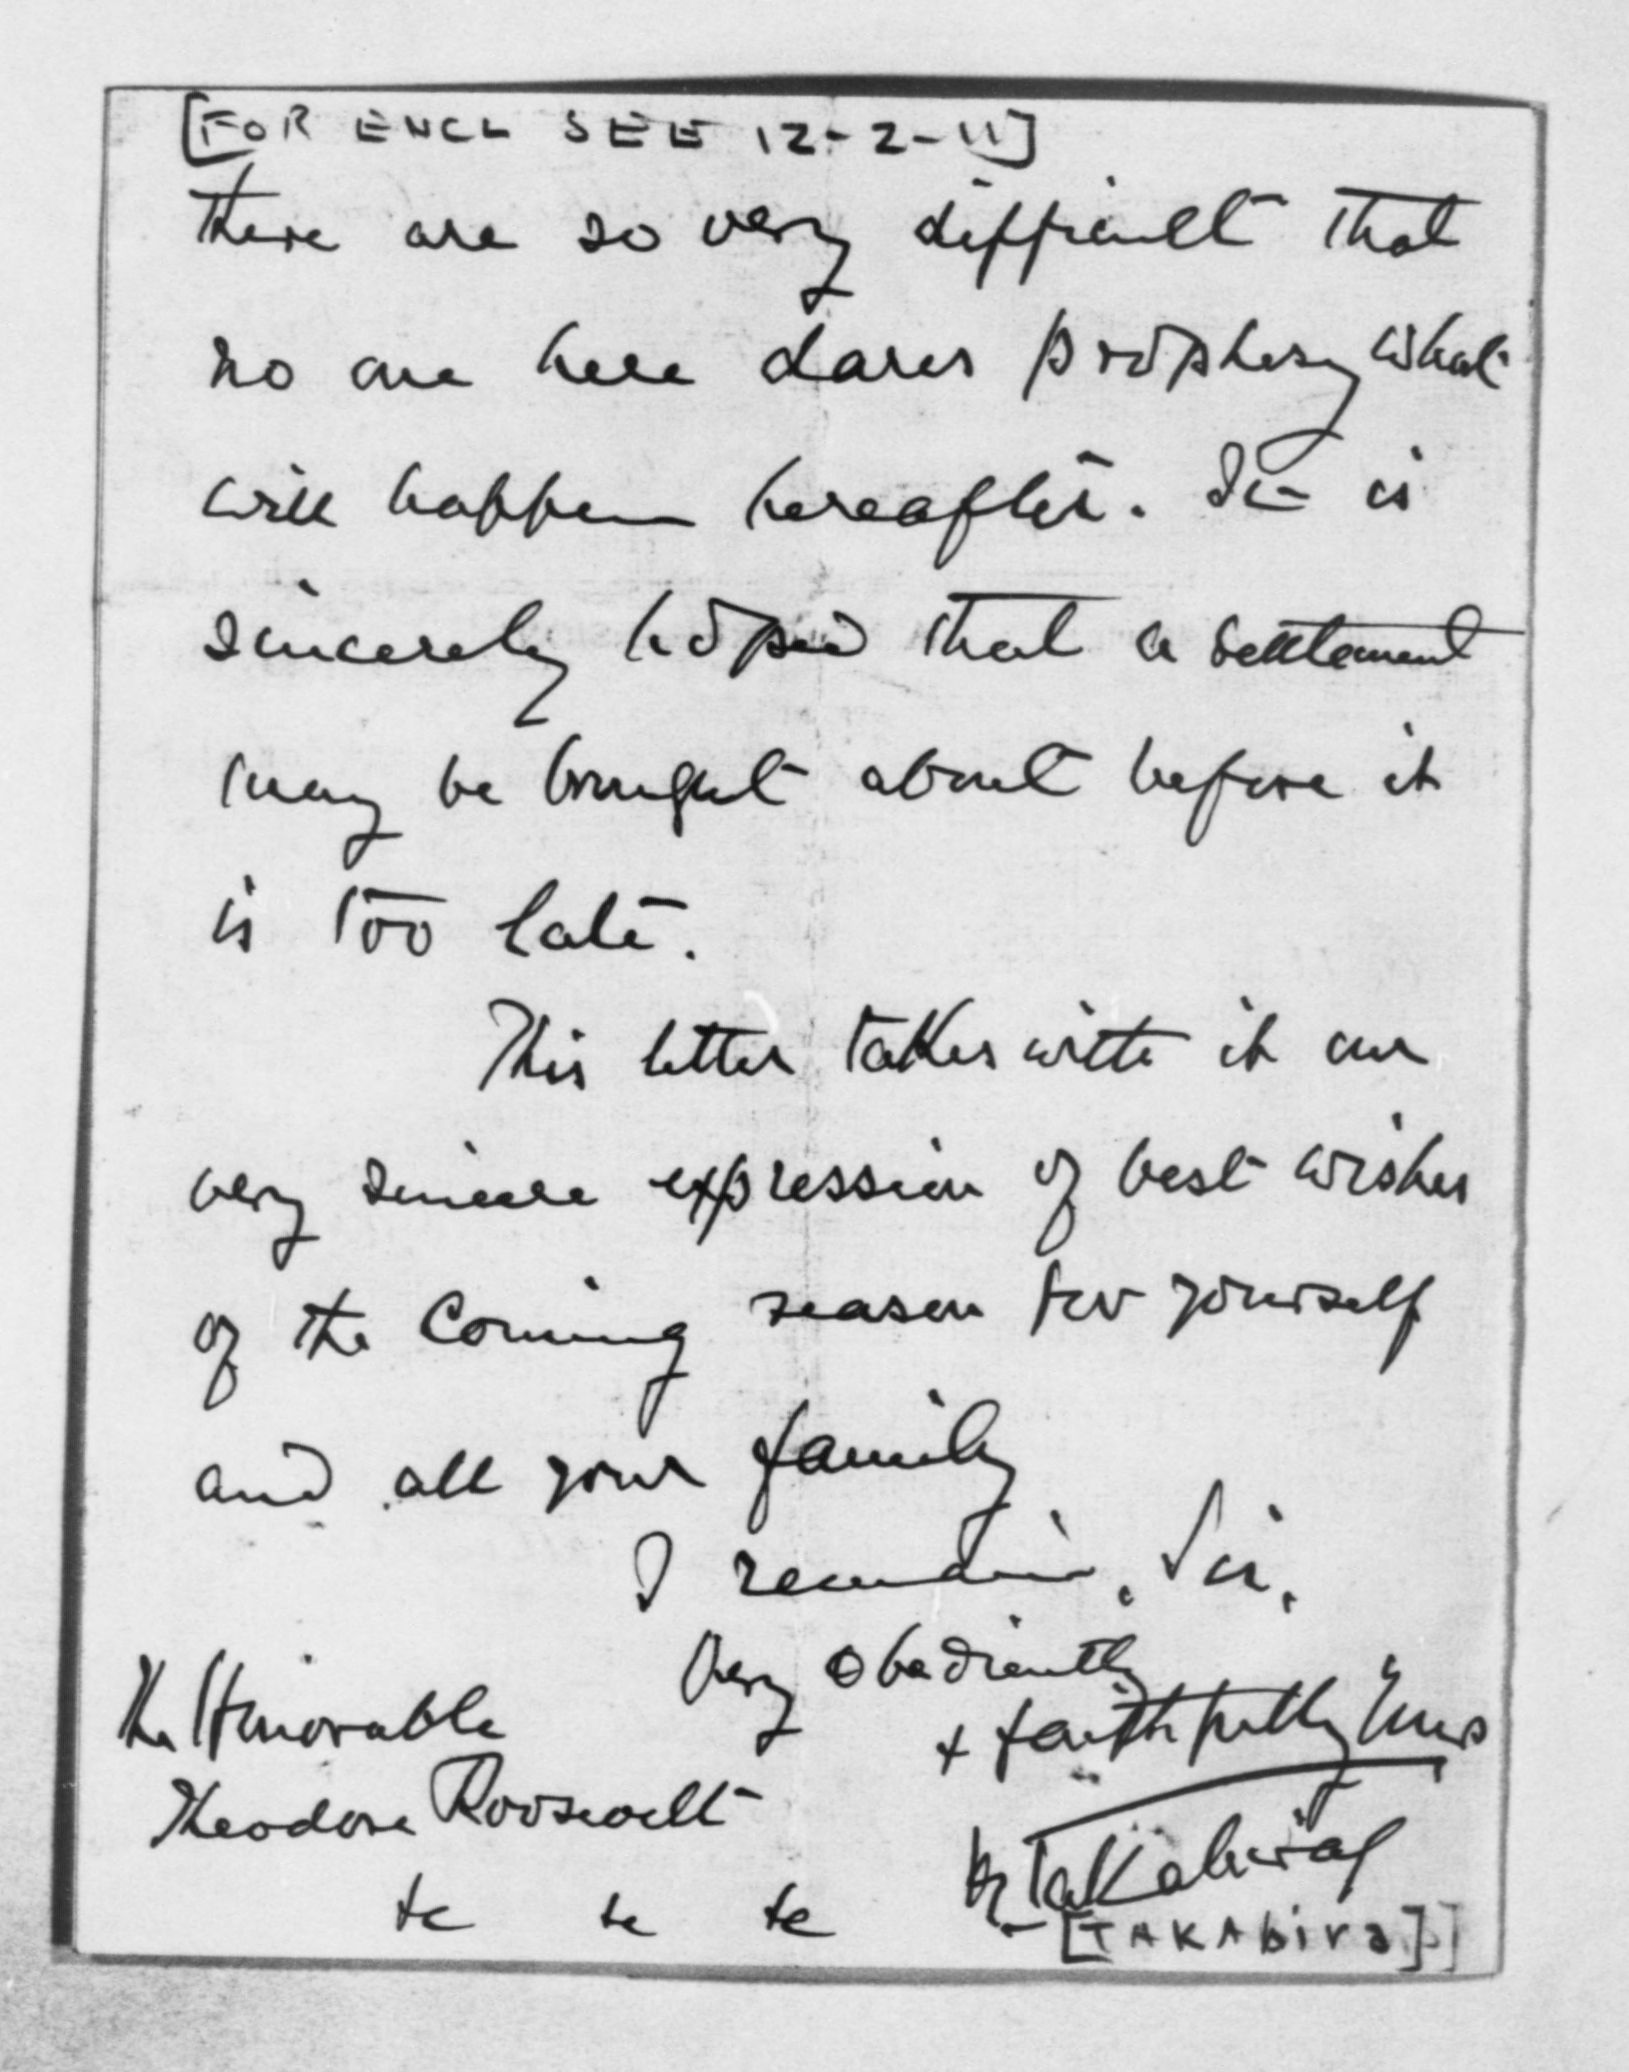 [FOR ENCL SEE 12-2-11]
there are so very difficult that
no one here dares prophesy what
will happen hereafter. It is
sincerely hoped that a settlement
may be brought about before it
is too late.
This letter takes with it our
very sincere expression of best wishes
of the coming season for yourself
and all your family
I remain, Sir,
Very obediently
+ faithfully Yours
The Honorable
Theodore Roosevelt
&c &c &c
K. Takahira
[TAKAhira]